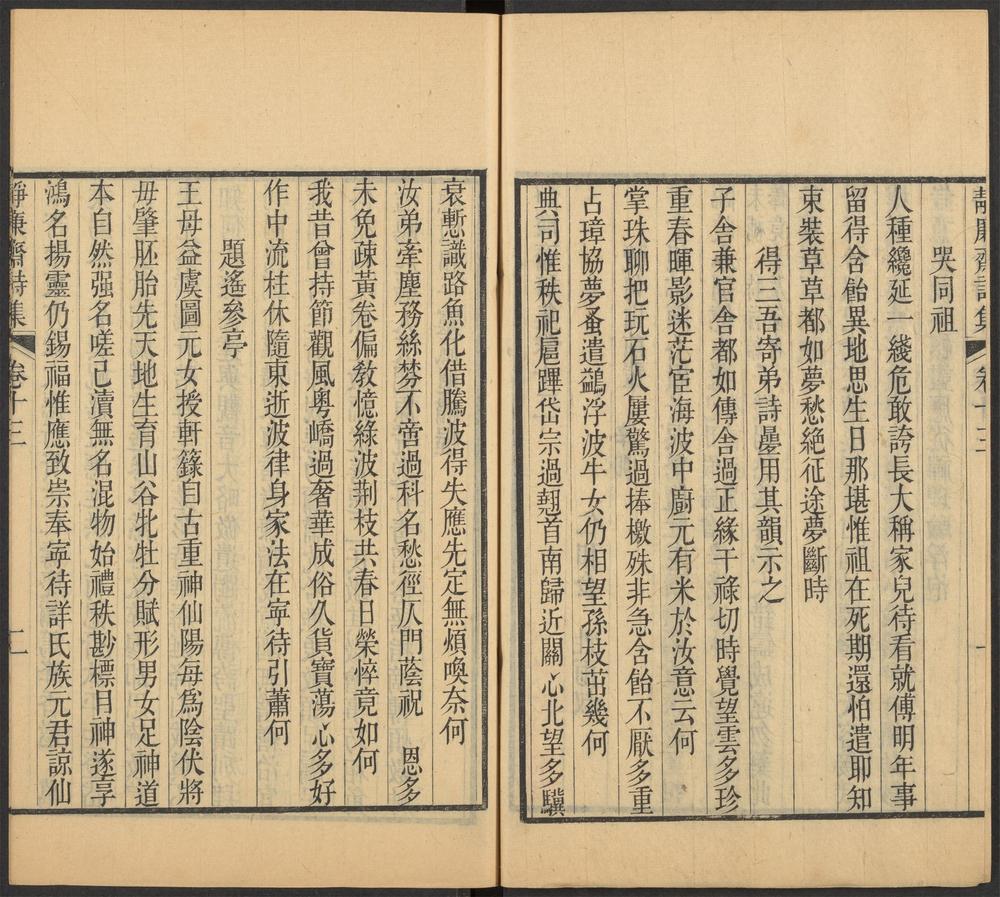 靜廉齋詩集 卷十三 一
哭同祖
人種纔延一綫危敢誇長大稱家兒待看就傅明年事
留得含飴異地思生日那堪惟祖在死期還怕遣耶知
束裝草草都如夢愁絕征途夢斷時
得三吾寄弟詩疊用其韻示之
子舍兼官舍都如傳舍過正緣干祿切時覺望雲多珍
重春暉影迷茫宦海波中廚元有米於汝意云何
掌珠聊把玩石火屢驚過捧檄殊非急含飴不厭多重
占璋協夢蚤遣鷁浮波牛女仍相望孫枝茁幾何
典司惟秩祀扈蹕岱宗過翹首南歸近關心北望多驥
衰慙識路魚化借騰波得失應先定無煩喚奈何
汝弟牽塵務絲棼不啻過科名愁徑仄門蔭祝 恩多
未免疎黃卷偏教憶綠波荆枝共春日榮悴竟如何
我昔曾持節觀風粤嶠過奢華成俗久貨寶蕩心多好
作中流柱休隨東逝波律身家法在寧待引蕭何
題遙參亭
王母益虞圖元女授軒籙自古重神仙陽每爲陰伏將
毋肇胚胎先天地生育山谷牝牡分賦形男女足神道
本自然强名嗟已瀆無名混物始禮秩尠標目神遂享
鴻名揚靈仍錫福惟應致崇奉寧待詳氏族元君諒仙
靜廉齋詩集 卷十三 二